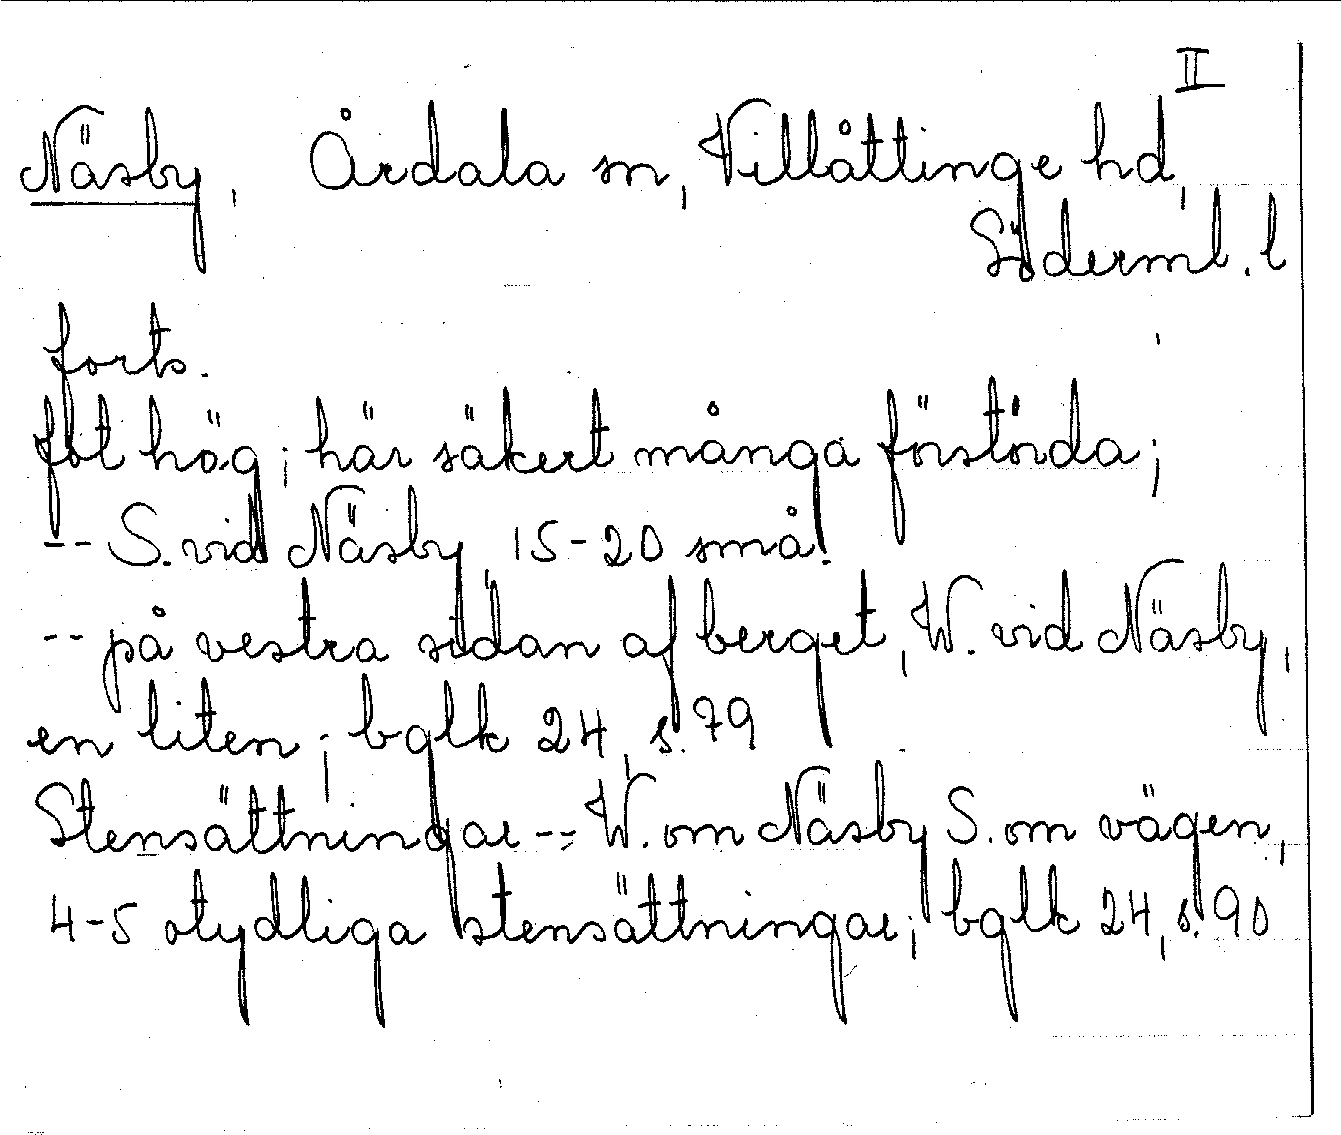 II
Näsby, Årdala sn, Villåttinge hd,
Söderml. l
forts.
fot hög; här säkert många förstörda;
-- S. vid Näsby, 15-20 små.
-- på vestra sidan af berget, W. vid Näsby,
en liten; bglk 24, s. 79
Stensättningar -- W. om Näsby S. om vägen,
4-5 otydliga stensättningar; bglk 24, s. 90